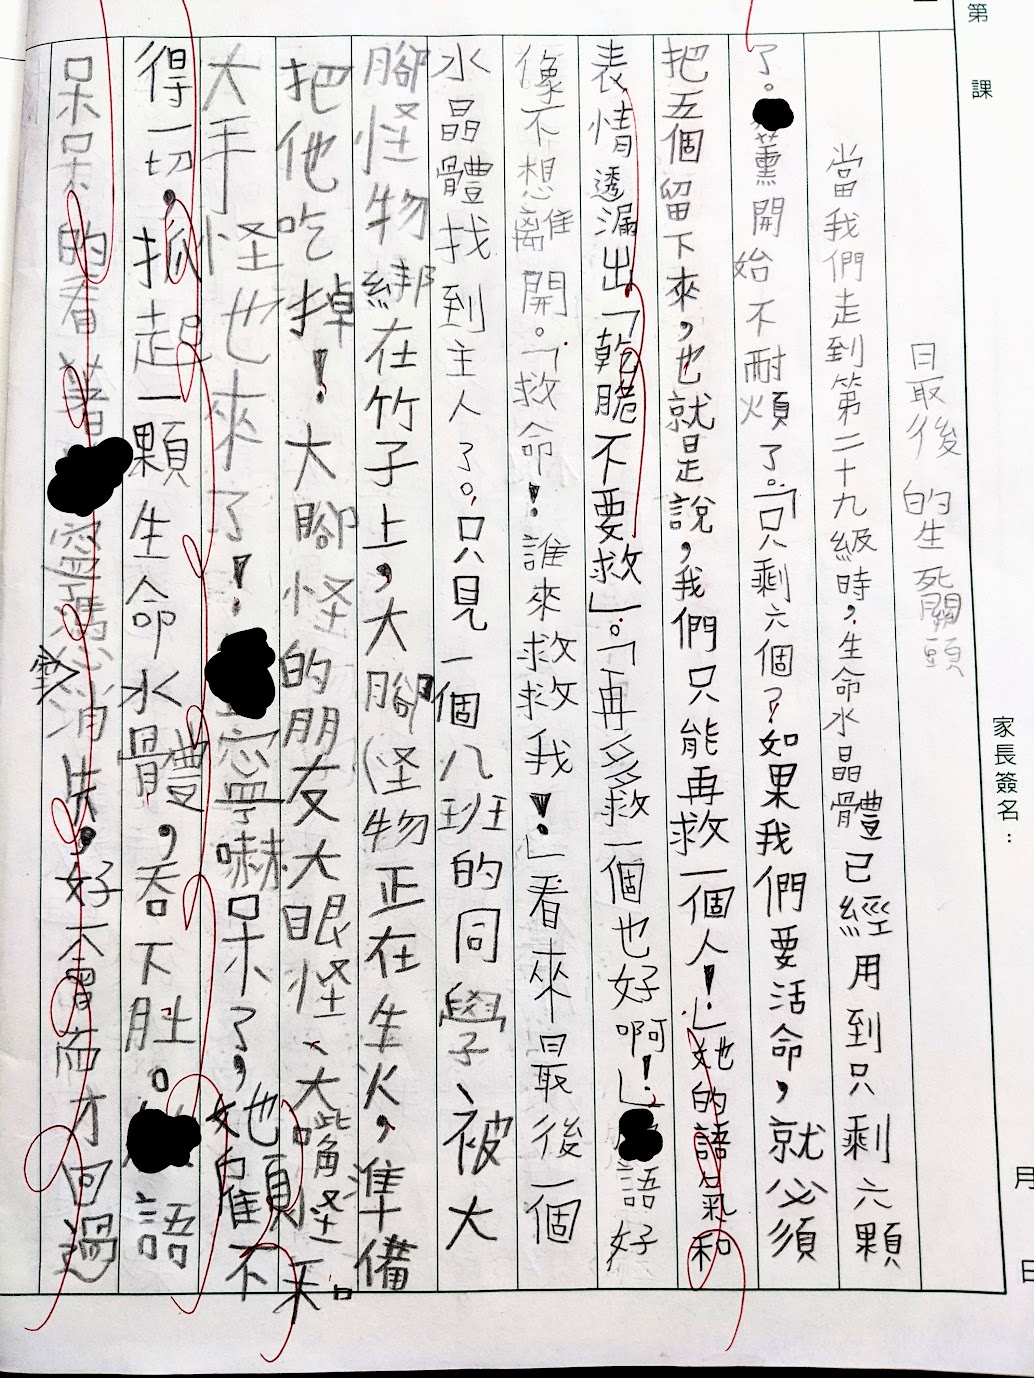 第 課
最後的生死關頭
當我們走到第二十九級時，生命水晶體已經用到只剩六顆
了。薰開始不耐煩了。「只剩六個了，如果我們要活命，就必須
把五個留下來，也就是說，我們只能再救一個人！」她的語氣和
表情透漏出「乾脆不要救」。「再多救一個也好啊！」語好
像不想離開。「救命！誰來救救我！」看來最後一個
水晶體找到主人了。只見一個八班的同學被大
腳怪物綁在竹子上，大腳怪物正在生火，準備
把他吃掉！大腳怪的朋友大眼怪、大嘴怪和
大手怪也來了！寧嚇呆了，她顧不
得一切，抓起一顆生命水體，吞下肚。語
呆呆的看著寧憑空消失，好一會而才回過
家長簽名：
月
日